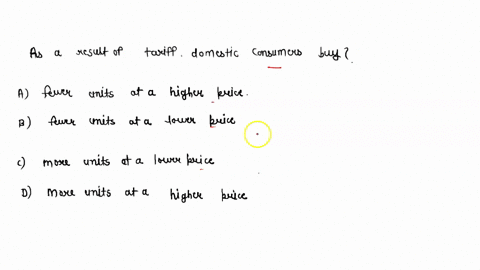 As a result of tariff. domestic consumers buy?
A) fewer units at a higher price.
B) fewer units at a lower price
C) more units at a lower price
D) More units at a higher price